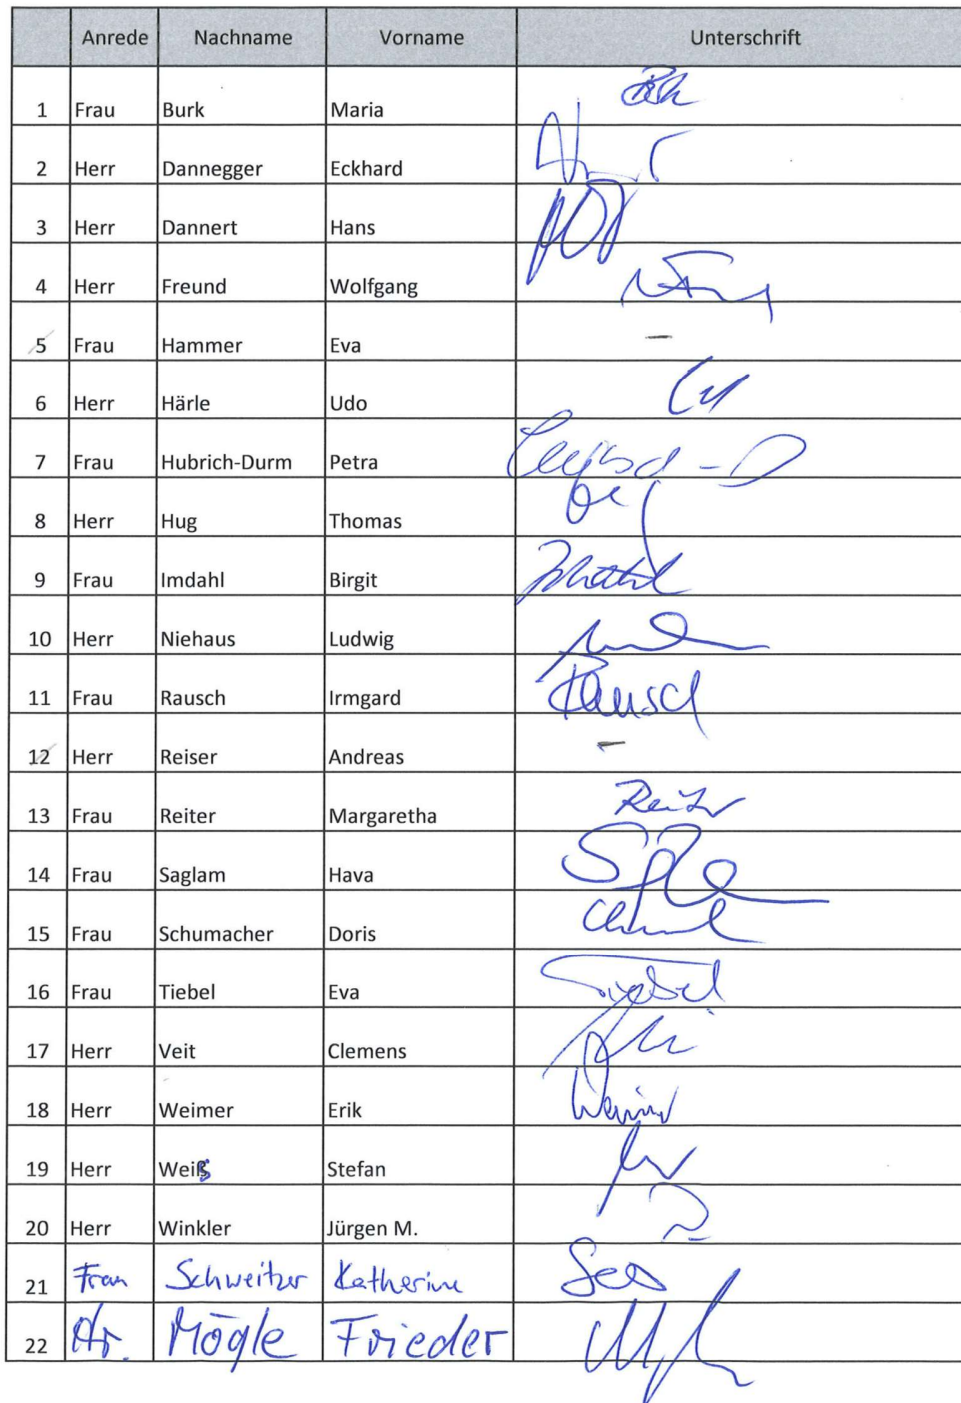 Anrede Nachname Vorname Unterschrift
1 Frau Burk Maria
2 Herr Dannegger Eckhard
3 Herr Dannert Hans
4 Herr Freund Wolfgang
5 Frau Hammer Eva –
6 Herr Härle Udo
7 Frau Hubrich-Durm Petra
8 Herr Hug Thomas
9 Frau Imdahl Birgit
10 Herr Niehaus Ludwig
11 Frau Rausch Irmgard Rausch
12 Herr Reiser Andreas –
13 Frau Reiter Margaretha Reiter
14 Frau Saglam Hava
15 Frau Schumacher Doris
16 Frau Tiebel Eva Tiebel
17 Herr Veit Clemens
18 Herr Weimer Erik Weimer
19 Herr Weiß Stefan
20 Herr Winkler Jürgen M.
21 Frau Schweitzer Katherine
22 Hr. Mögle Frieder